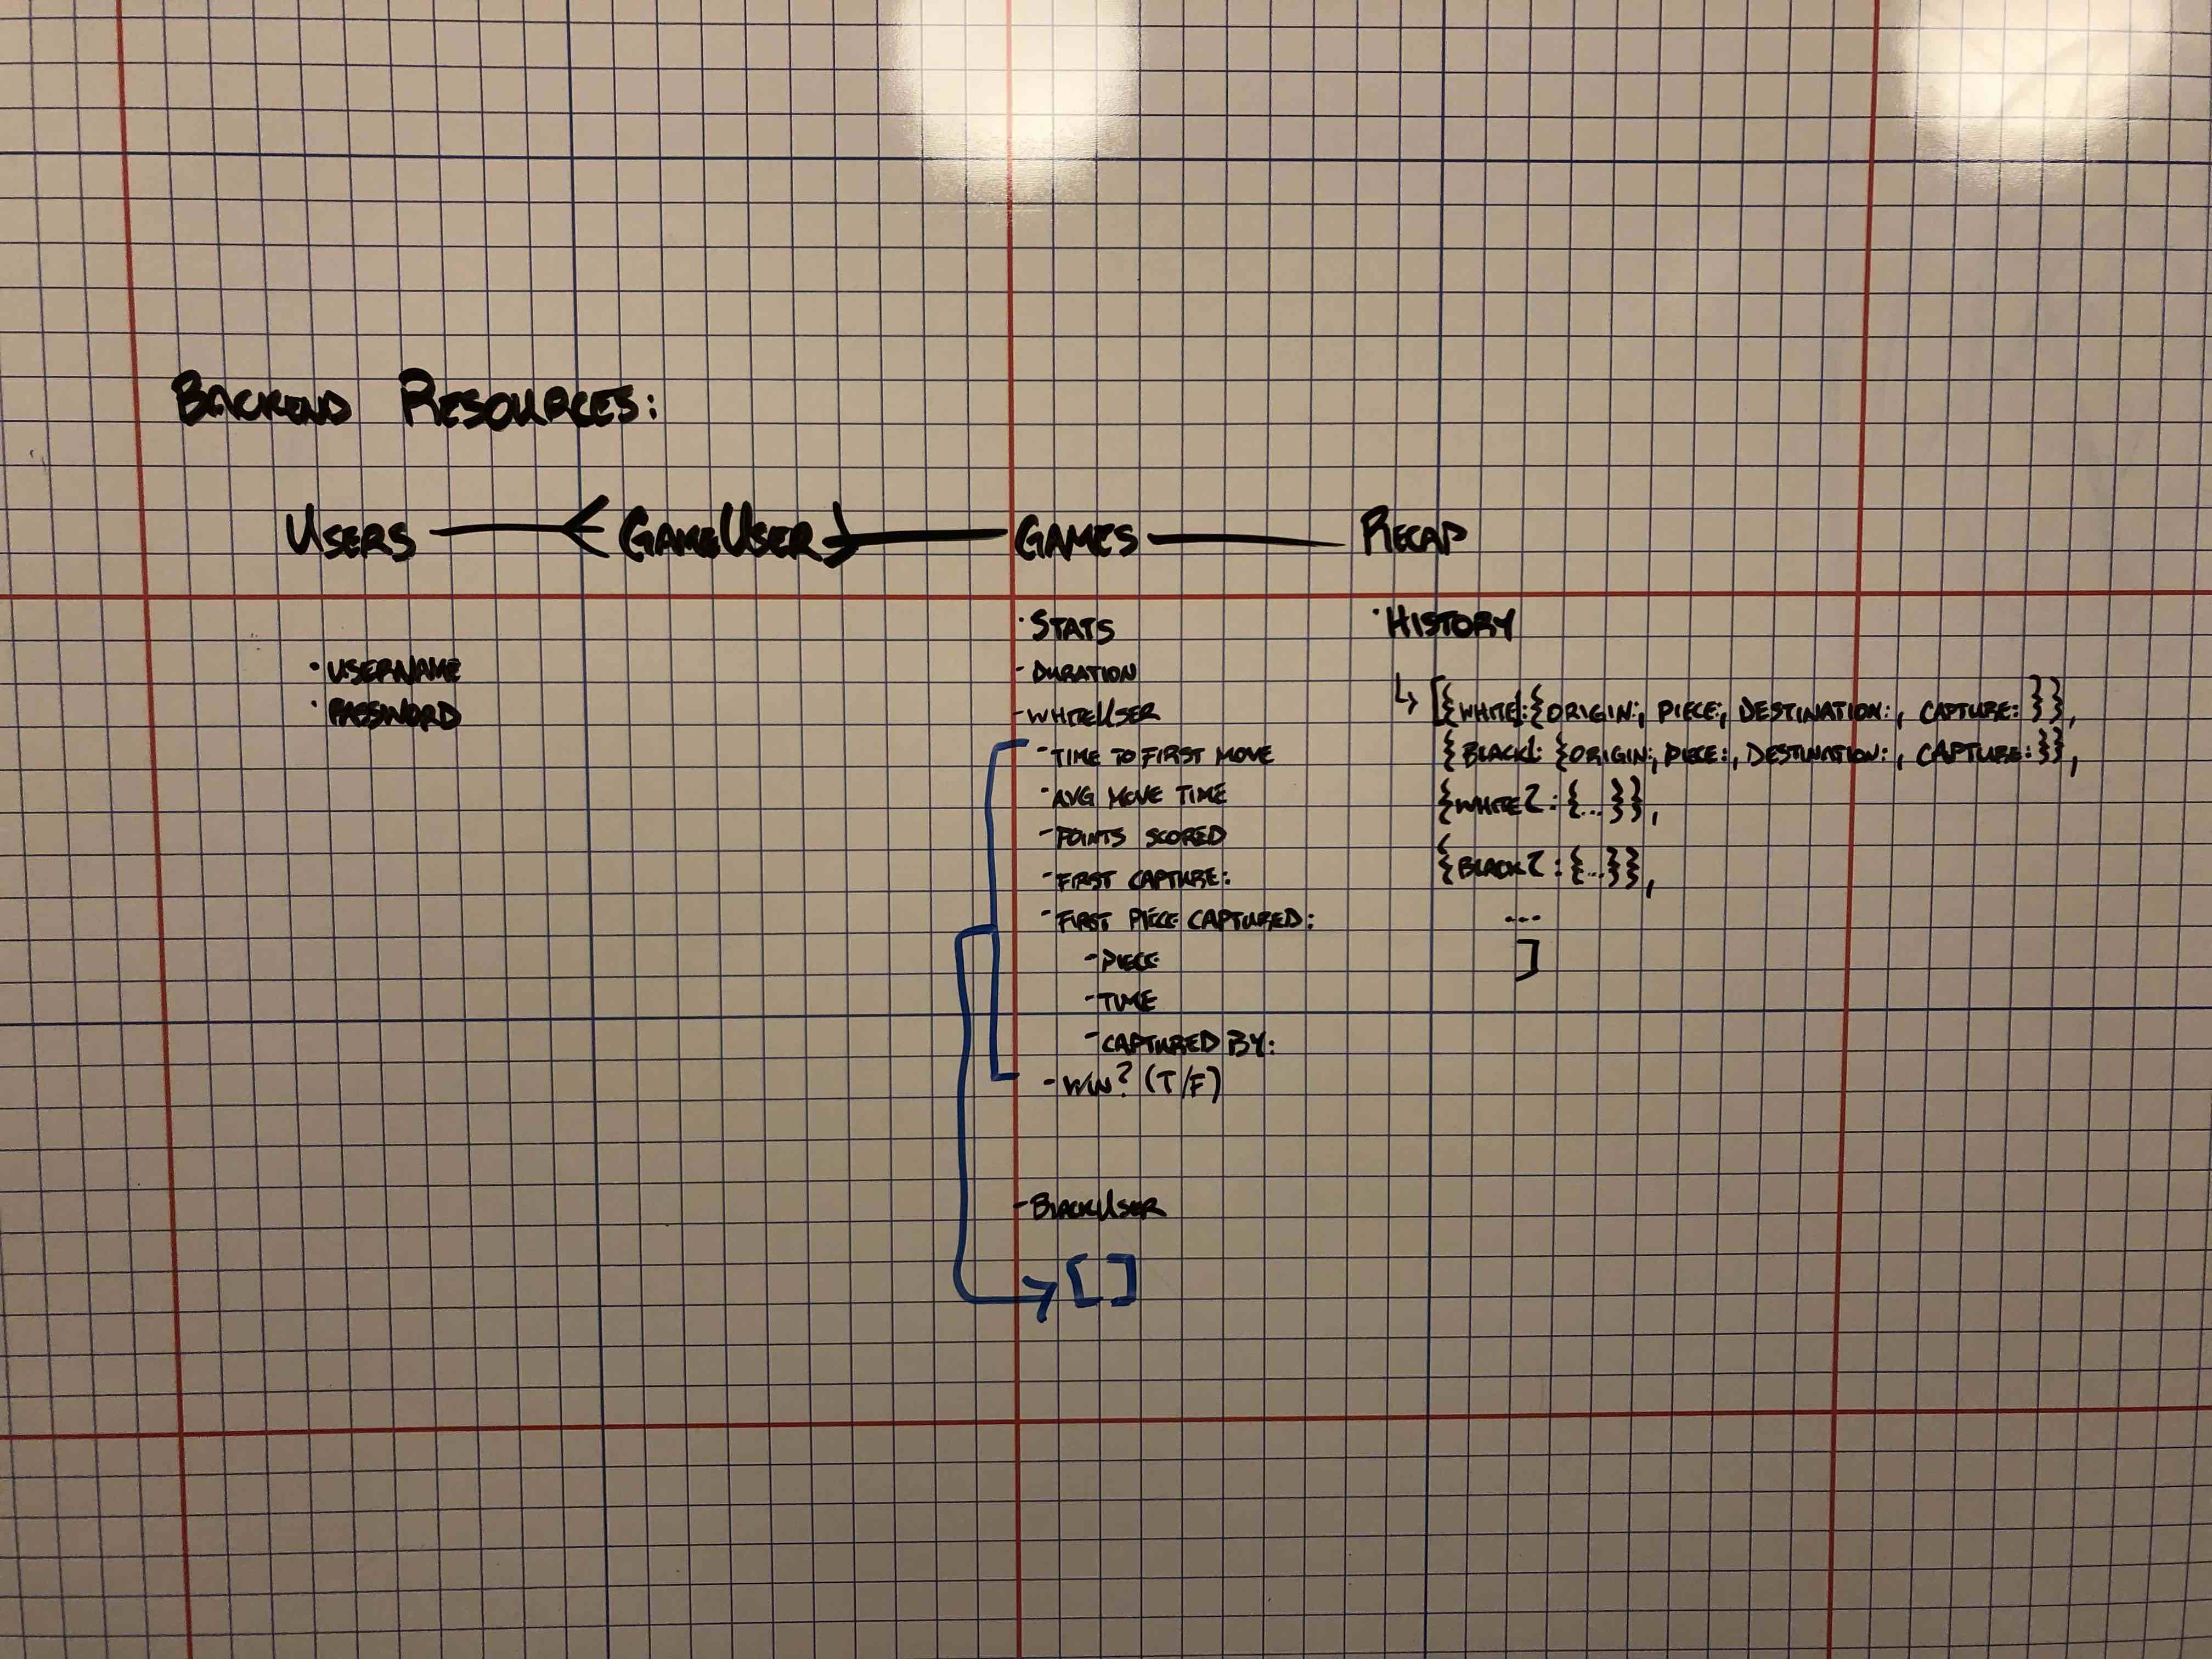 BACKEND RESOURCES:
USERS GAMEUSER GAMES RECAP
· USERNAME
· PASSWORD
· STATS
- DURATION
- WHITEUSER
- TIME TO FIRST MOVE
- AVG MOVE TIME
- POINTS SCORED
- FIRST CAPTURE:
- FIRST PIECE CAPTURED:
- PIECE
- TIME
- CAPTURED BY:
- WIN? (T/F)
- BLACKUSER
[ ]
· HISTORY
↳ [{WHITE1:{ORIGIN:, PIECE:, DESTINATION:, CAPTURE: }},
{BLACK1: {ORIGIN:, PIECE:, DESTINATION:, CAPTURE:}},
{WHITE2: {...}},
{BLACK2: {...}},
...
]